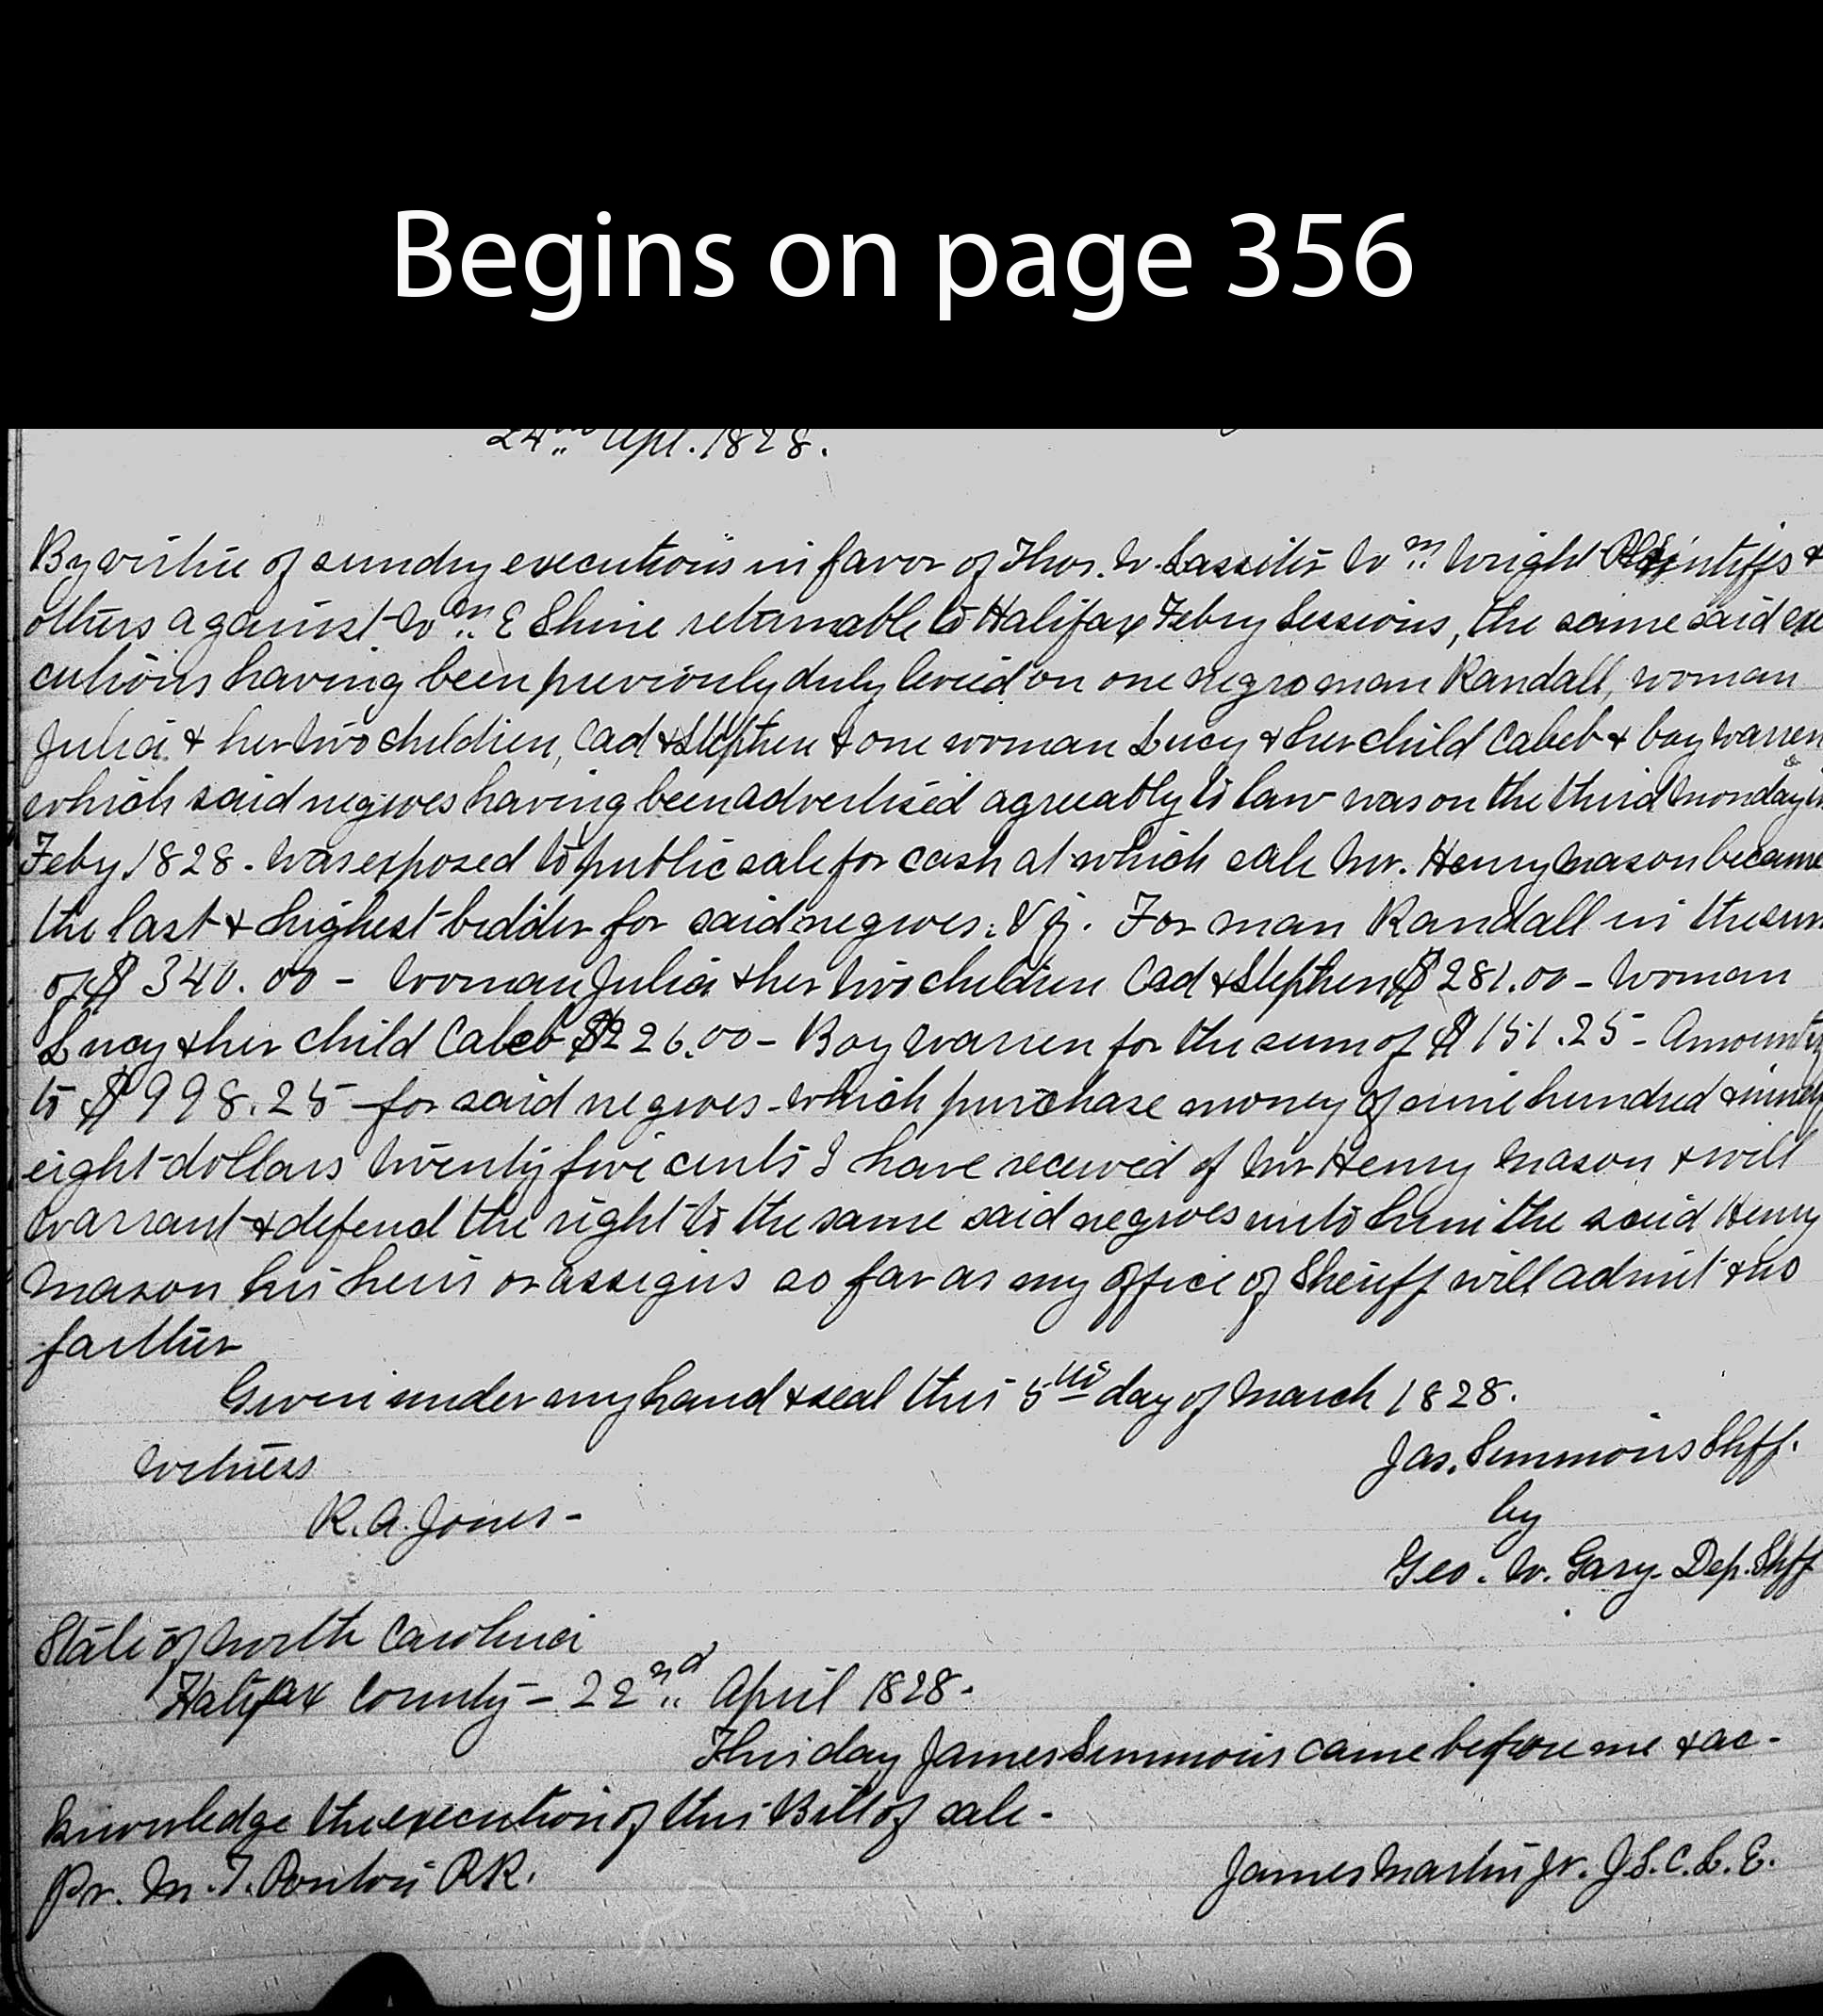 Begins on page 356
24th Apl. 1828.
By virtue of sundry executions in favor of Thos. W. Lassiter Wm. Wright Plaintiffs &
others against Wm. E Shine returnable to Halifax Febry Sessions, the same said exe
cutions having been previously duly levied on one negro man Randall, woman
Julia & her two children, Cad & Stephen & one woman Lucy & her child Caleb & boy Warren
which said negroes having been advertised agreeably to law was on the third Monday in
Feby 1828 - was exposed to public sale for cash at which sale Mr. Henry Mason became
the last & highest bidder for said negroes. Viz. For man Randall in the sum
of $340.00 - Woman Julia & her two children Cad & Stephen $281.00 - Woman
Lucy & her child Caleb $226.00 - Boy Warren for the sum of $151.25 - Amounting
to $998.25 for said negroes - which purchase money of nine hundred & ninety
eight dollars twenty five cents I have received of Mr Henry Mason & will
warrant & defend the right to the same said negroes unto him the said Henry
Mason his heirs or assigns so far as my office of Sheriff will admit & no
farther
Given under my hand & seal this 5th day of March 1828.
Witness
Jas. Simmons Shff.
R. A. Jones -
by
Geo. W. Gary Dep. Shff
State of North Carolina
Halifax County - 22nd. April 1828.
This day James Simmons came before me & ac-
knowledge the execution of this Bill of sale -
Pr. M. T. Ponton P.R.
James Martin Jr. J.S.C.L.E.